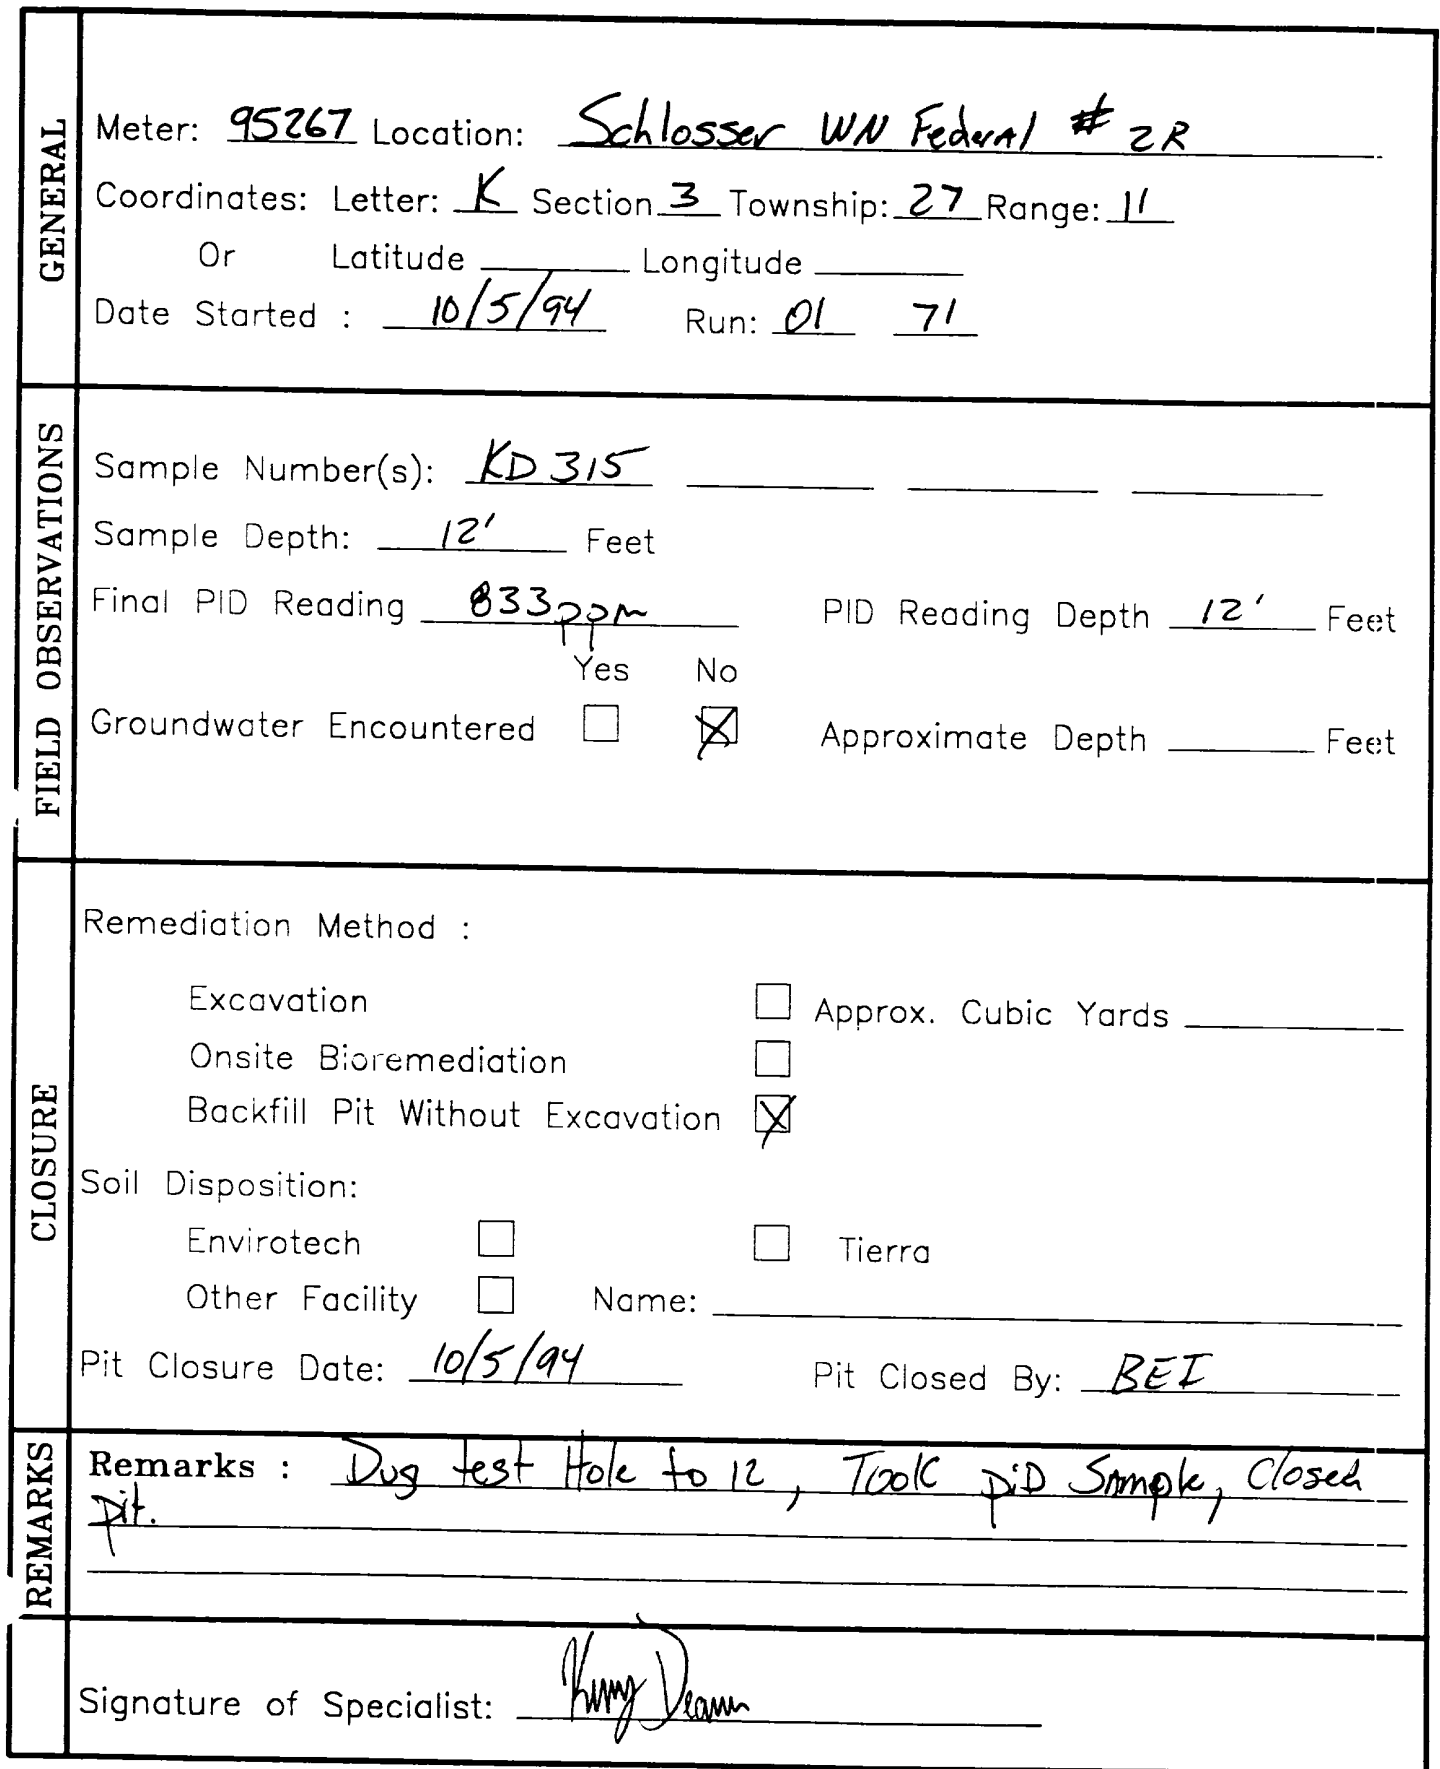 GENERAL
Meter: 95267 Location: Schlosser WN Federal # 2R
Coordinates: Letter: K Section 3 Township: 27 Range: 11
Or Latitude ______ Longitude ______
Date Started : 10/5/94 Run: 01 71
FIELD OBSERVATIONS
Sample Number(s): KD 315
Sample Depth: 12' Feet
Final PID Reading 833ppm PID Reading Depth 12' Feet
Yes No
Groundwater Encountered ☐ ☒ Approximate Depth ______ Feet
CLOSURE
Remediation Method :
Excavation ☐ Approx. Cubic Yards ______
Onsite Bioremediation ☐
Backfill Pit Without Excavation ☒
Soil Disposition:
Envirotech ☐ ☐ Tierra
Other Facility ☐ Name: ______
Pit Closure Date: 10/5/94 Pit Closed By: BEI
REMARKS
Remarks : Dug test Hole to 12, Took PiD Sample, Closed
pit.
Signature of Specialist: